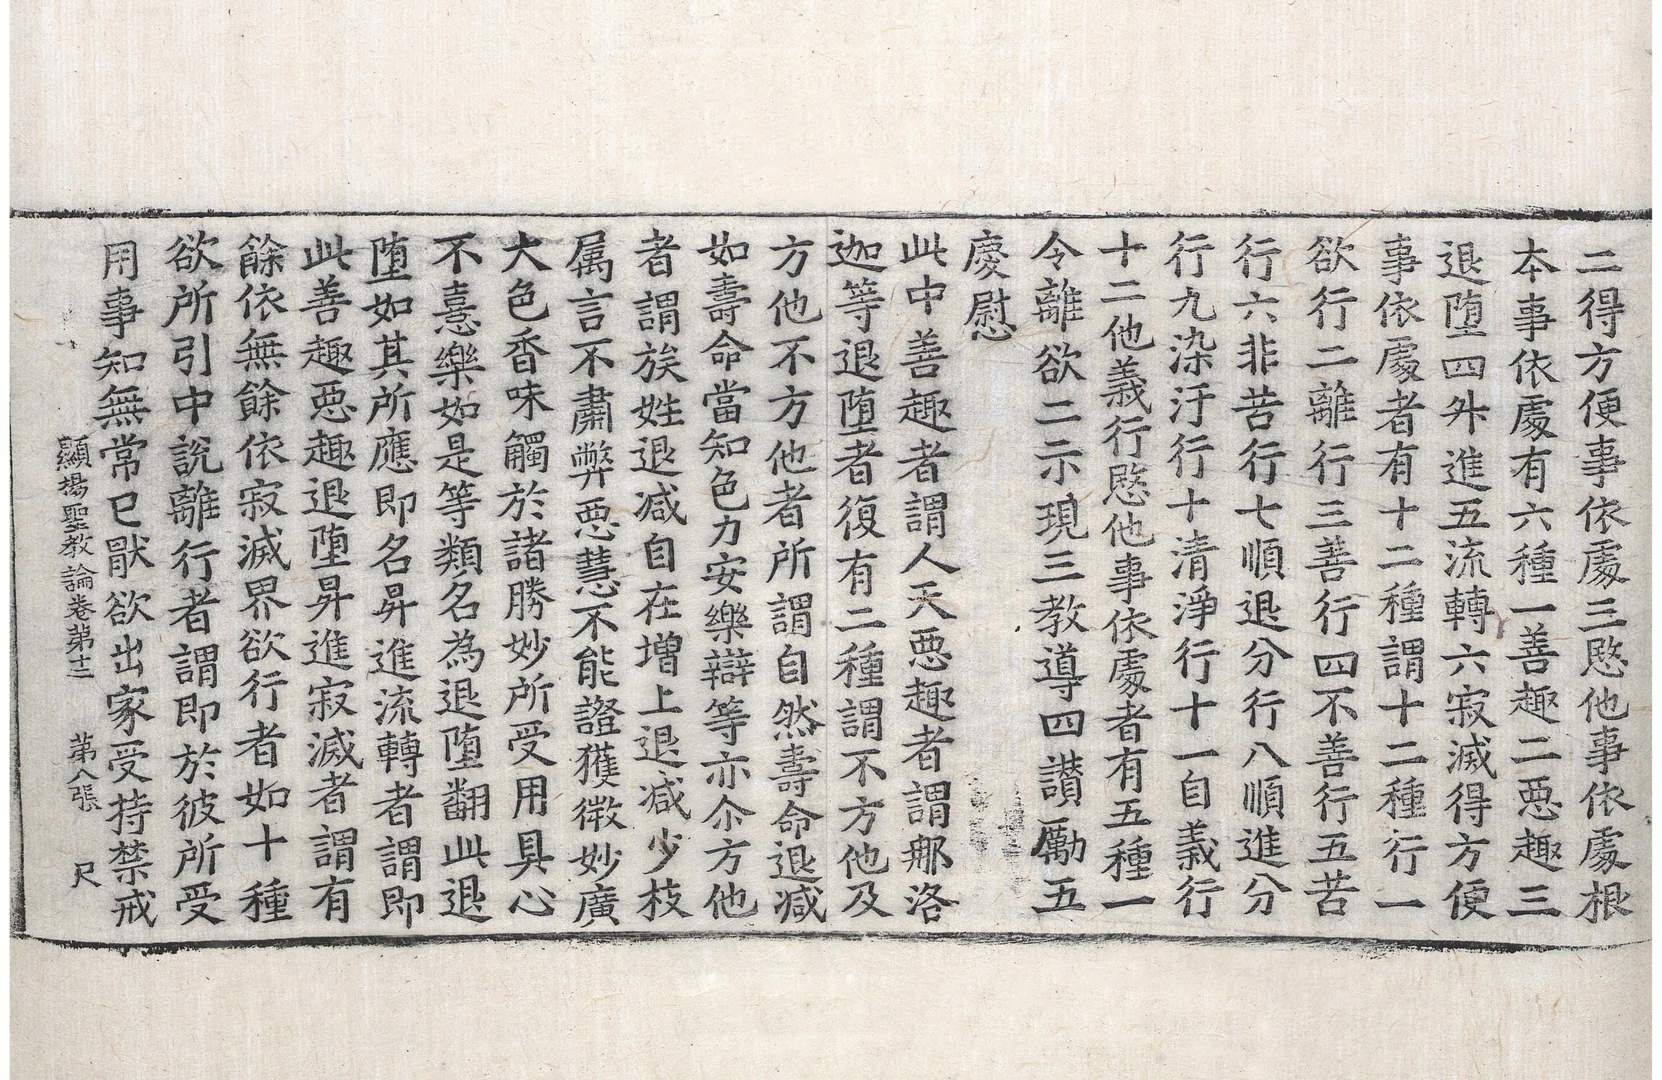 二得方便事依處三愍他事依處根
本事依處有六種一善趣二惡趣三
退墮四升進五流轉六寂滅得方便
事依處者有十二種謂十二種行一
欲行二離行三善行四不善行五苦
行六非苦行七順退分行八順進分
行九染汙行十清淨行十一自義行
十二他義行愍他事依處者有五種一
令離欲二示現三教導四讃勵五
慶慰
此中善趣者謂人天惡趣者謂那洛
迦等退墮者復有二種謂不方他及
方他不方他者所謂自然壽命退減
如壽命當知色力安樂辯等亦尒方他
者謂族姓退減自在增上退減少枝
属言不肅弊惡慧不能證獲微妙廣
大色香味觸於諸勝妙所受用具心
不憙樂如是等類名為退墮翻此退
墮如其所應即名昇進流轉者謂即
此善趣惡趣退墮昇進寂滅者謂有
餘依無餘依寂滅界欲行者如十種
欲所引中說離行者謂即於彼所受
用事知無常已猒欲出家受持禁戒
顯揚聖教論卷第十二 第八張 尺